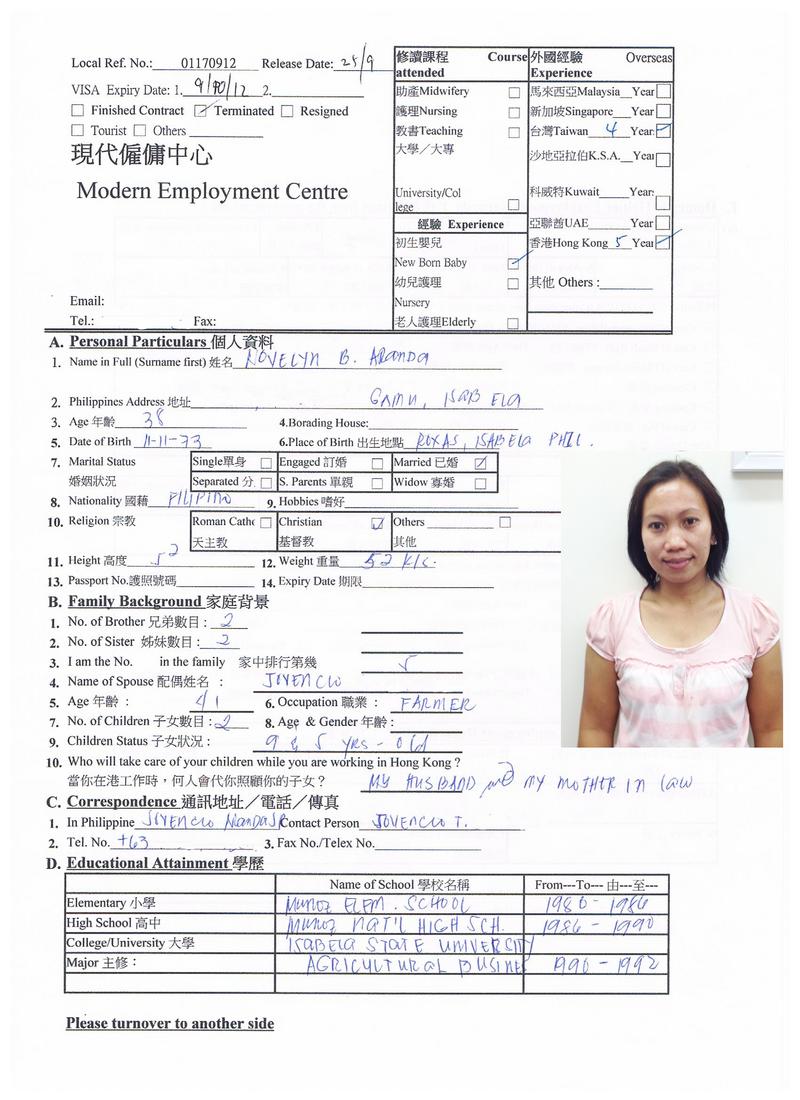 Local Ref. No.: 01170912 Release Date: 25/9
VISA Expiry Date: 1. 9/10/12 2.
Finished Contract Terminated Resigned
Tourist Others
現代僱傭中心
Modern Employment Centre
Email:
Tel.: Fax:
修讀課程 Course
attended
助產Midwifery
護理Nursing
教書Teaching
大學／大專
University/Col
lege
經驗 Experience
初生嬰兒
New Born Baby
幼兒護理
Nursery
老人護理Elderly
外國經驗 Overseas
Experience
馬來西亞Malaysia Year
新加坡Singapore Year
台灣Taiwan 4 Year
沙地亞拉伯K.S.A. Year
科威特Kuwait Year
亞聯酋UAE Year
香港Hong Kong 5 Year
其他 Others :
A. Personal Particulars 個人資料
1. Name in Full (Surname first) 姓名 NOVELYN B. ARANDA
2. Philippines Address 地址 GAMU, ISABELA
3. Age 年齡 38 4.Borading House:
5. Date of Birth 11-11-73 6.Place of Birth 出生地點 ROXAS, ISABELA PHIL.
7. Marital Status Single單身 Engaged 訂婚 Married 已婚
婚姻狀況 Separated 分 S. Parents 單親 Widow 寡婚
8. Nationality 國藉 PILIPINO 9. Hobbies 嗜好
10. Religion 宗教 Roman Catho Christian Others
天主教 基督教 其他
11. Height 高度 5 2 12. Weight 重量 52 Kls.
13. Passport No.護照號碼 14. Expiry Date 期限
B. Family Background 家庭背景
1. No. of Brother 兄弟數目 : 2
2. No. of Sister 姊妹數目 : 2
3. I am the No. in the family 家中排行第幾 5
4. Name of Spouse 配偶姓名 : JOVENCIO
5. Age 年齡 : 41 6. Occupation 職業 : FARMER
7. No. of Children 子女數目 : 2 8. Age & Gender 年齡 :
9. Children Status 子女狀況 : 9 & 5 yrs-old
10. Who will take care of your children while you are working in Hong Kong ?
當你在港工作時，何人會代你照顧你的子女？ MY HUSBAND and MY MOTHER IN law
C. Correspondence 通訊地址／電話／傳真
1. In Philippine JOVENCIO Contact Person JOVENCIO T.
2. Tel. No. +63 3. Fax No./Telex No.
D. Educational Attainment 學歷
Name of School 學校名稱 From---To--- 由---至---
Elementary 小學 MUNOZ ELEM. SCHOOL 1980 - 1986
High School 高中 MUNOZ NAT'L HIGH SCH. 1986 - 1990
College/University 大學 ISABELA STATE UNIVERSITY
Major 主修： AGRICULTURAL BUSINES 1990 - 1992
Please turnover to another side